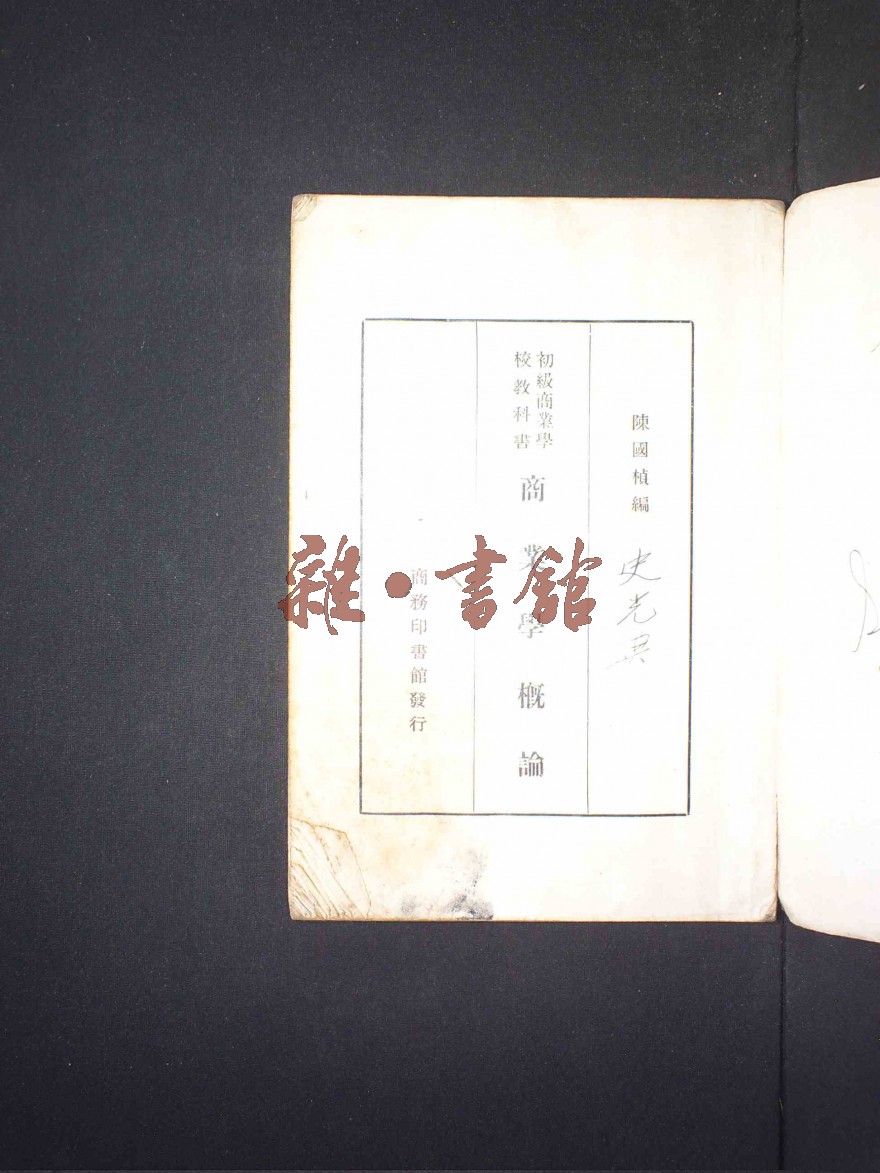 陳國楨編
史光
初級商業學
校教科書
商業學概論
商務印書館發行
雜·書館